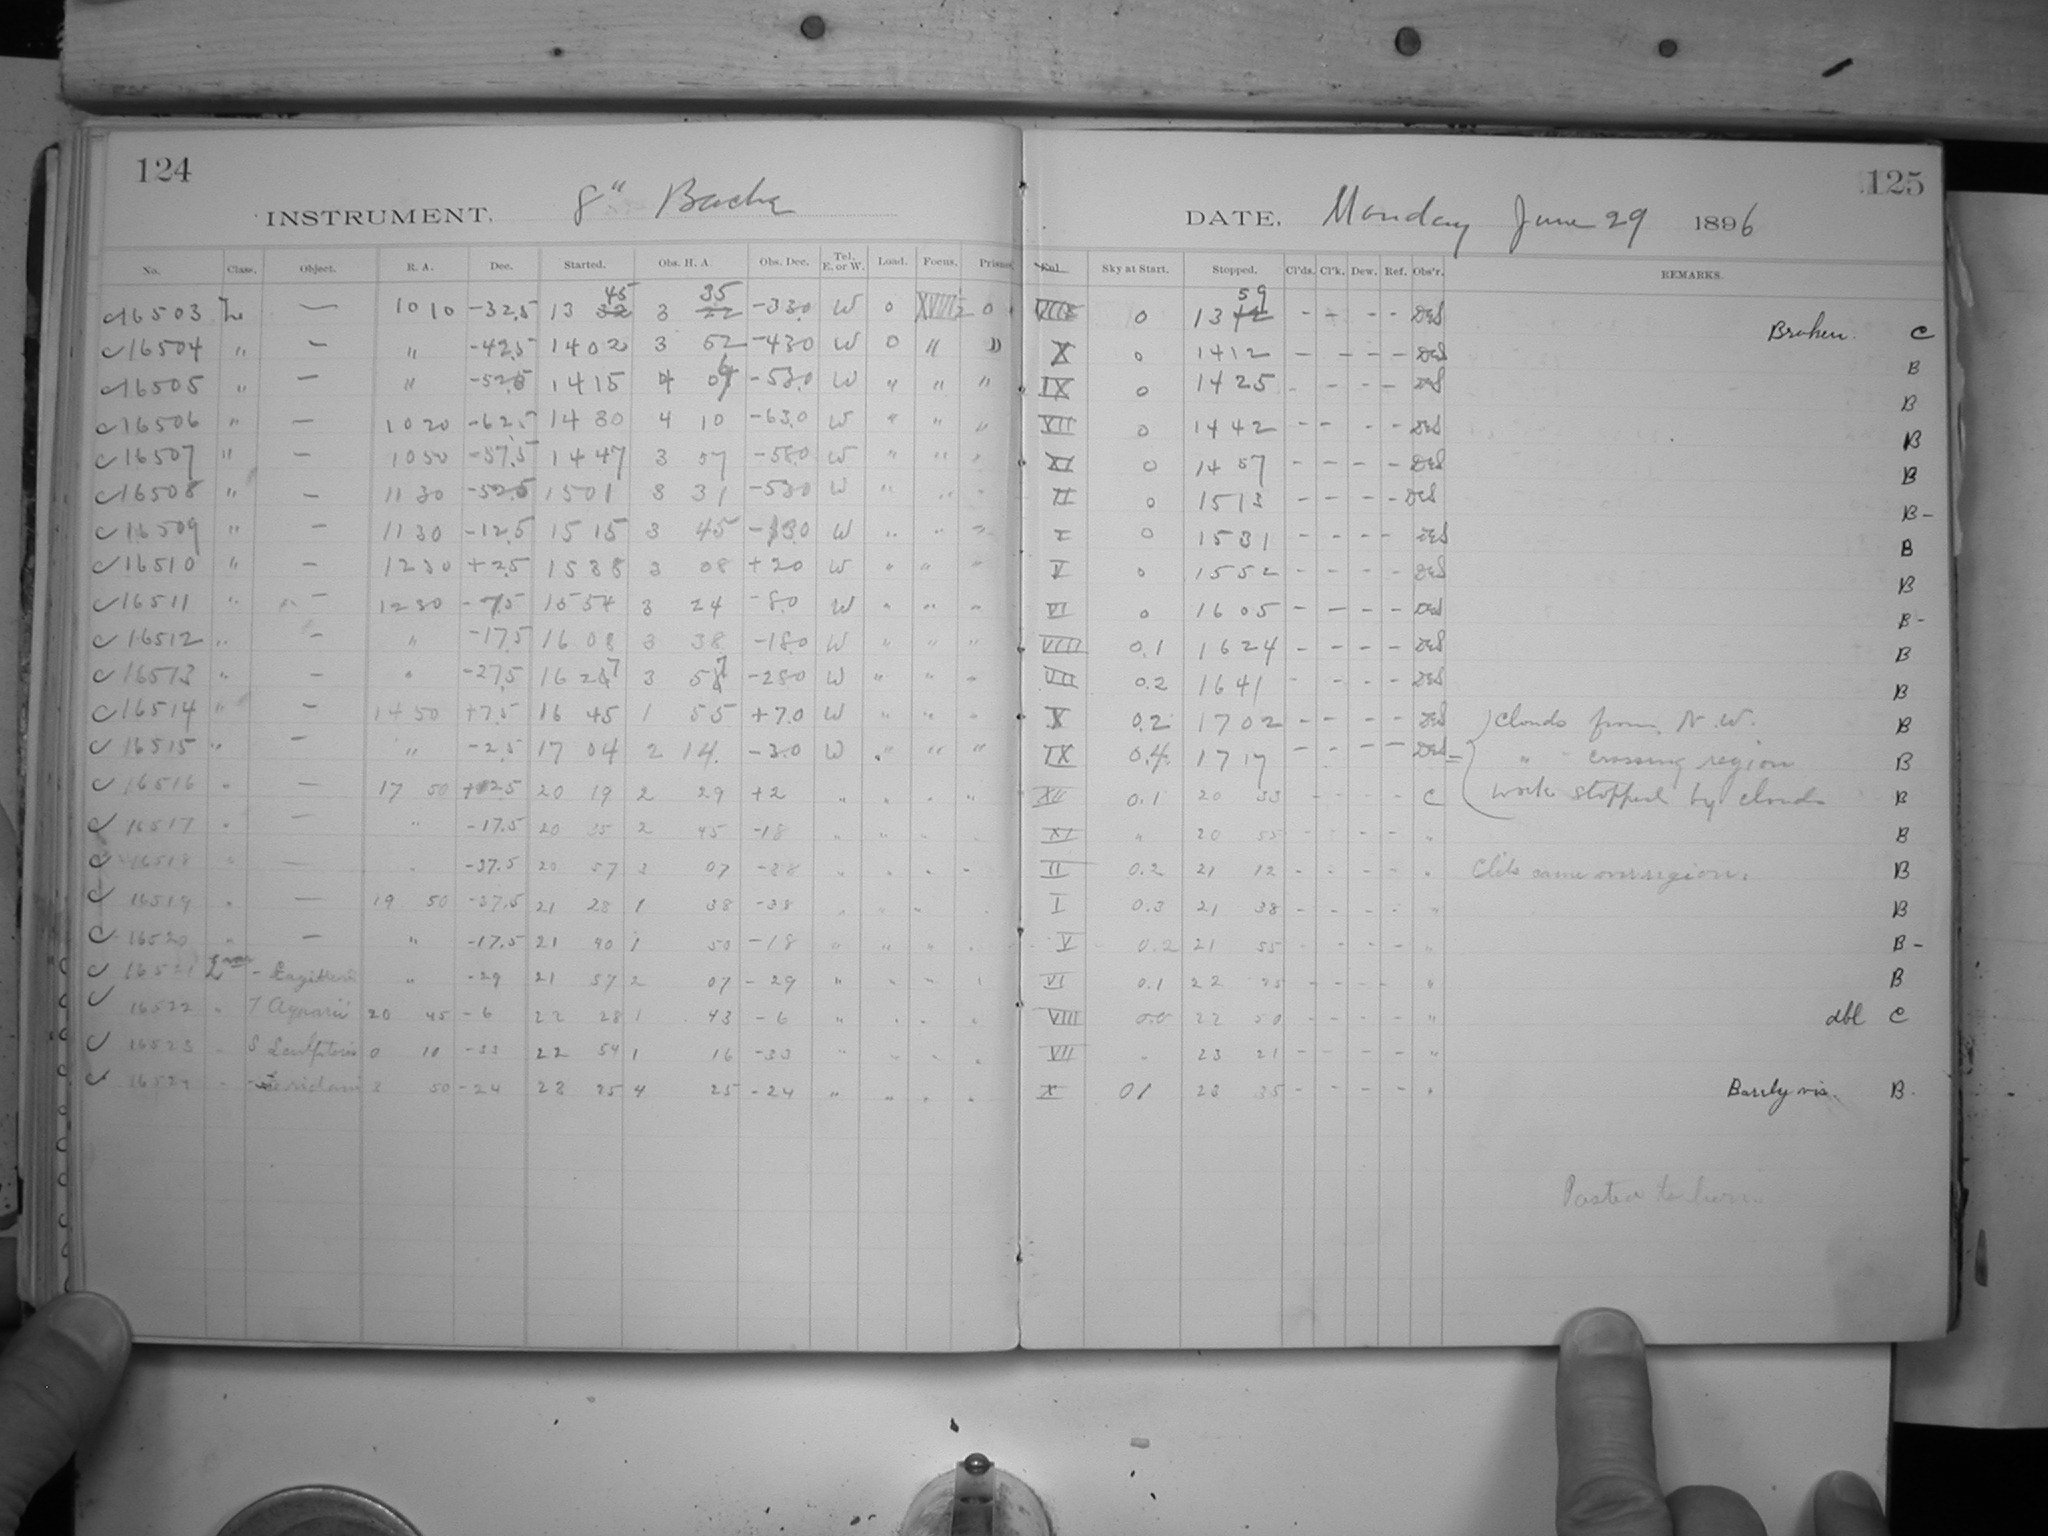 124
INSTRUMENT. 8" Bache
No. Class. Object. R. A. Dec. Started. Obs. H. A. Obs. Dec. Tel. E. or W. Load. Focus. Prisms
16503 L — 10 10 -32.5 13 32 45 3 22 35 -33.0 W 0 XVIII½ 0
16504 " — " -42.5 14 02 3 52 -43.0 W 0 " "
16505 " — " -52.5 14 15 4 04 -53.0 W " " "
16506 " — 10 20 -62.5 14 30 4 10 -63.0 W " " "
16507 " — 10 50 -57.5 14 47 3 57 -58.0 W " " "
16508 " — 11 30 -52.5 15 01 3 31 -53.0 W " " "
16509 " — 11 30 -12.5 15 15 3 45 -13.0 W " " "
16510 " — 12 30 +2.5 15 38 3 08 +2.0 W " " "
16511 " — 12 30 -7.5 15 54 3 24 -8.0 W " " "
16512 " — " -17.5 16 08 3 38 -18.0 W " " "
16513 " — " -27.5 16 27 3 57 -28.0 W " " "
16514 " — 14 50 +7.5 16 45 1 55 +7.0 W " " "
16515 " — " -2.5 17 04 2 14 -3.0 W " " "
16516 " — 17 50 +2.5 20 19 2 29 +2 " " " "
16517 " — " -17.5 20 35 2 45 -18 " " " "
16518 " — " -37.5 20 57 3 07 -38 " " " "
16519 " — 19 50 -37.5 21 28 1 38 -38 " " " "
16520 " — " -17.5 21 40 1 50 -18 " " " "
16521 - Sagittarii " -29 21 57 2 07 -29 " " " "
16522 " T Aquarii 20 45 -6 22 28 1 43 -6 " " " "
16523 " S Sculptoris 0 10 -33 22 54 1 16 -33 " " " "
16524 " Eridani 50 -24 23 25 4 25 -24 " " " "
125
DATE. Monday June 29 1896
Sky at Start. Stopped. Cl'ds. Cl'k. Dew. Ref. Obs'r. REMARKS.
VIII 0 13 42 59 - - - - DES Broken. C
X 0 14 12 - - - - DES B
IX 0 14 25 - - - - DES B
VII 0 14 42 - - - - DES B
XI 0 14 57 - - - - DES B
II 0 15 13 - - - - DES B -
I 0 15 31 - - - - DES B
V 0 15 52 - - - - DES B
VI 0 16 05 - - - - DES B -
VIII 0.1 16 24 - - - - DES B
VII 0.2 16 41 - - - - DES B
X 0.2 17 02 - - - - DES Clouds from N.W. B
IX 0.4 17 17 - - - - DES " crossing region B
XII 0.1 20 33 - - - - C Work stopped by clouds B
XI " 20 55 - - - - " B
II 0.2 21 12 - - - - " Cl'ds came over region. B
I 0.3 21 38 - - - - " B
V 0.2 21 55 - - - - " B -
VI 0.1 22 25 - - - - " B
VIII 0.0 22 50 - - - - " dbl C
VII " 23 21 - - - - "
X 01 23 35 - - - - " Barely vis. B.
Posted to here.